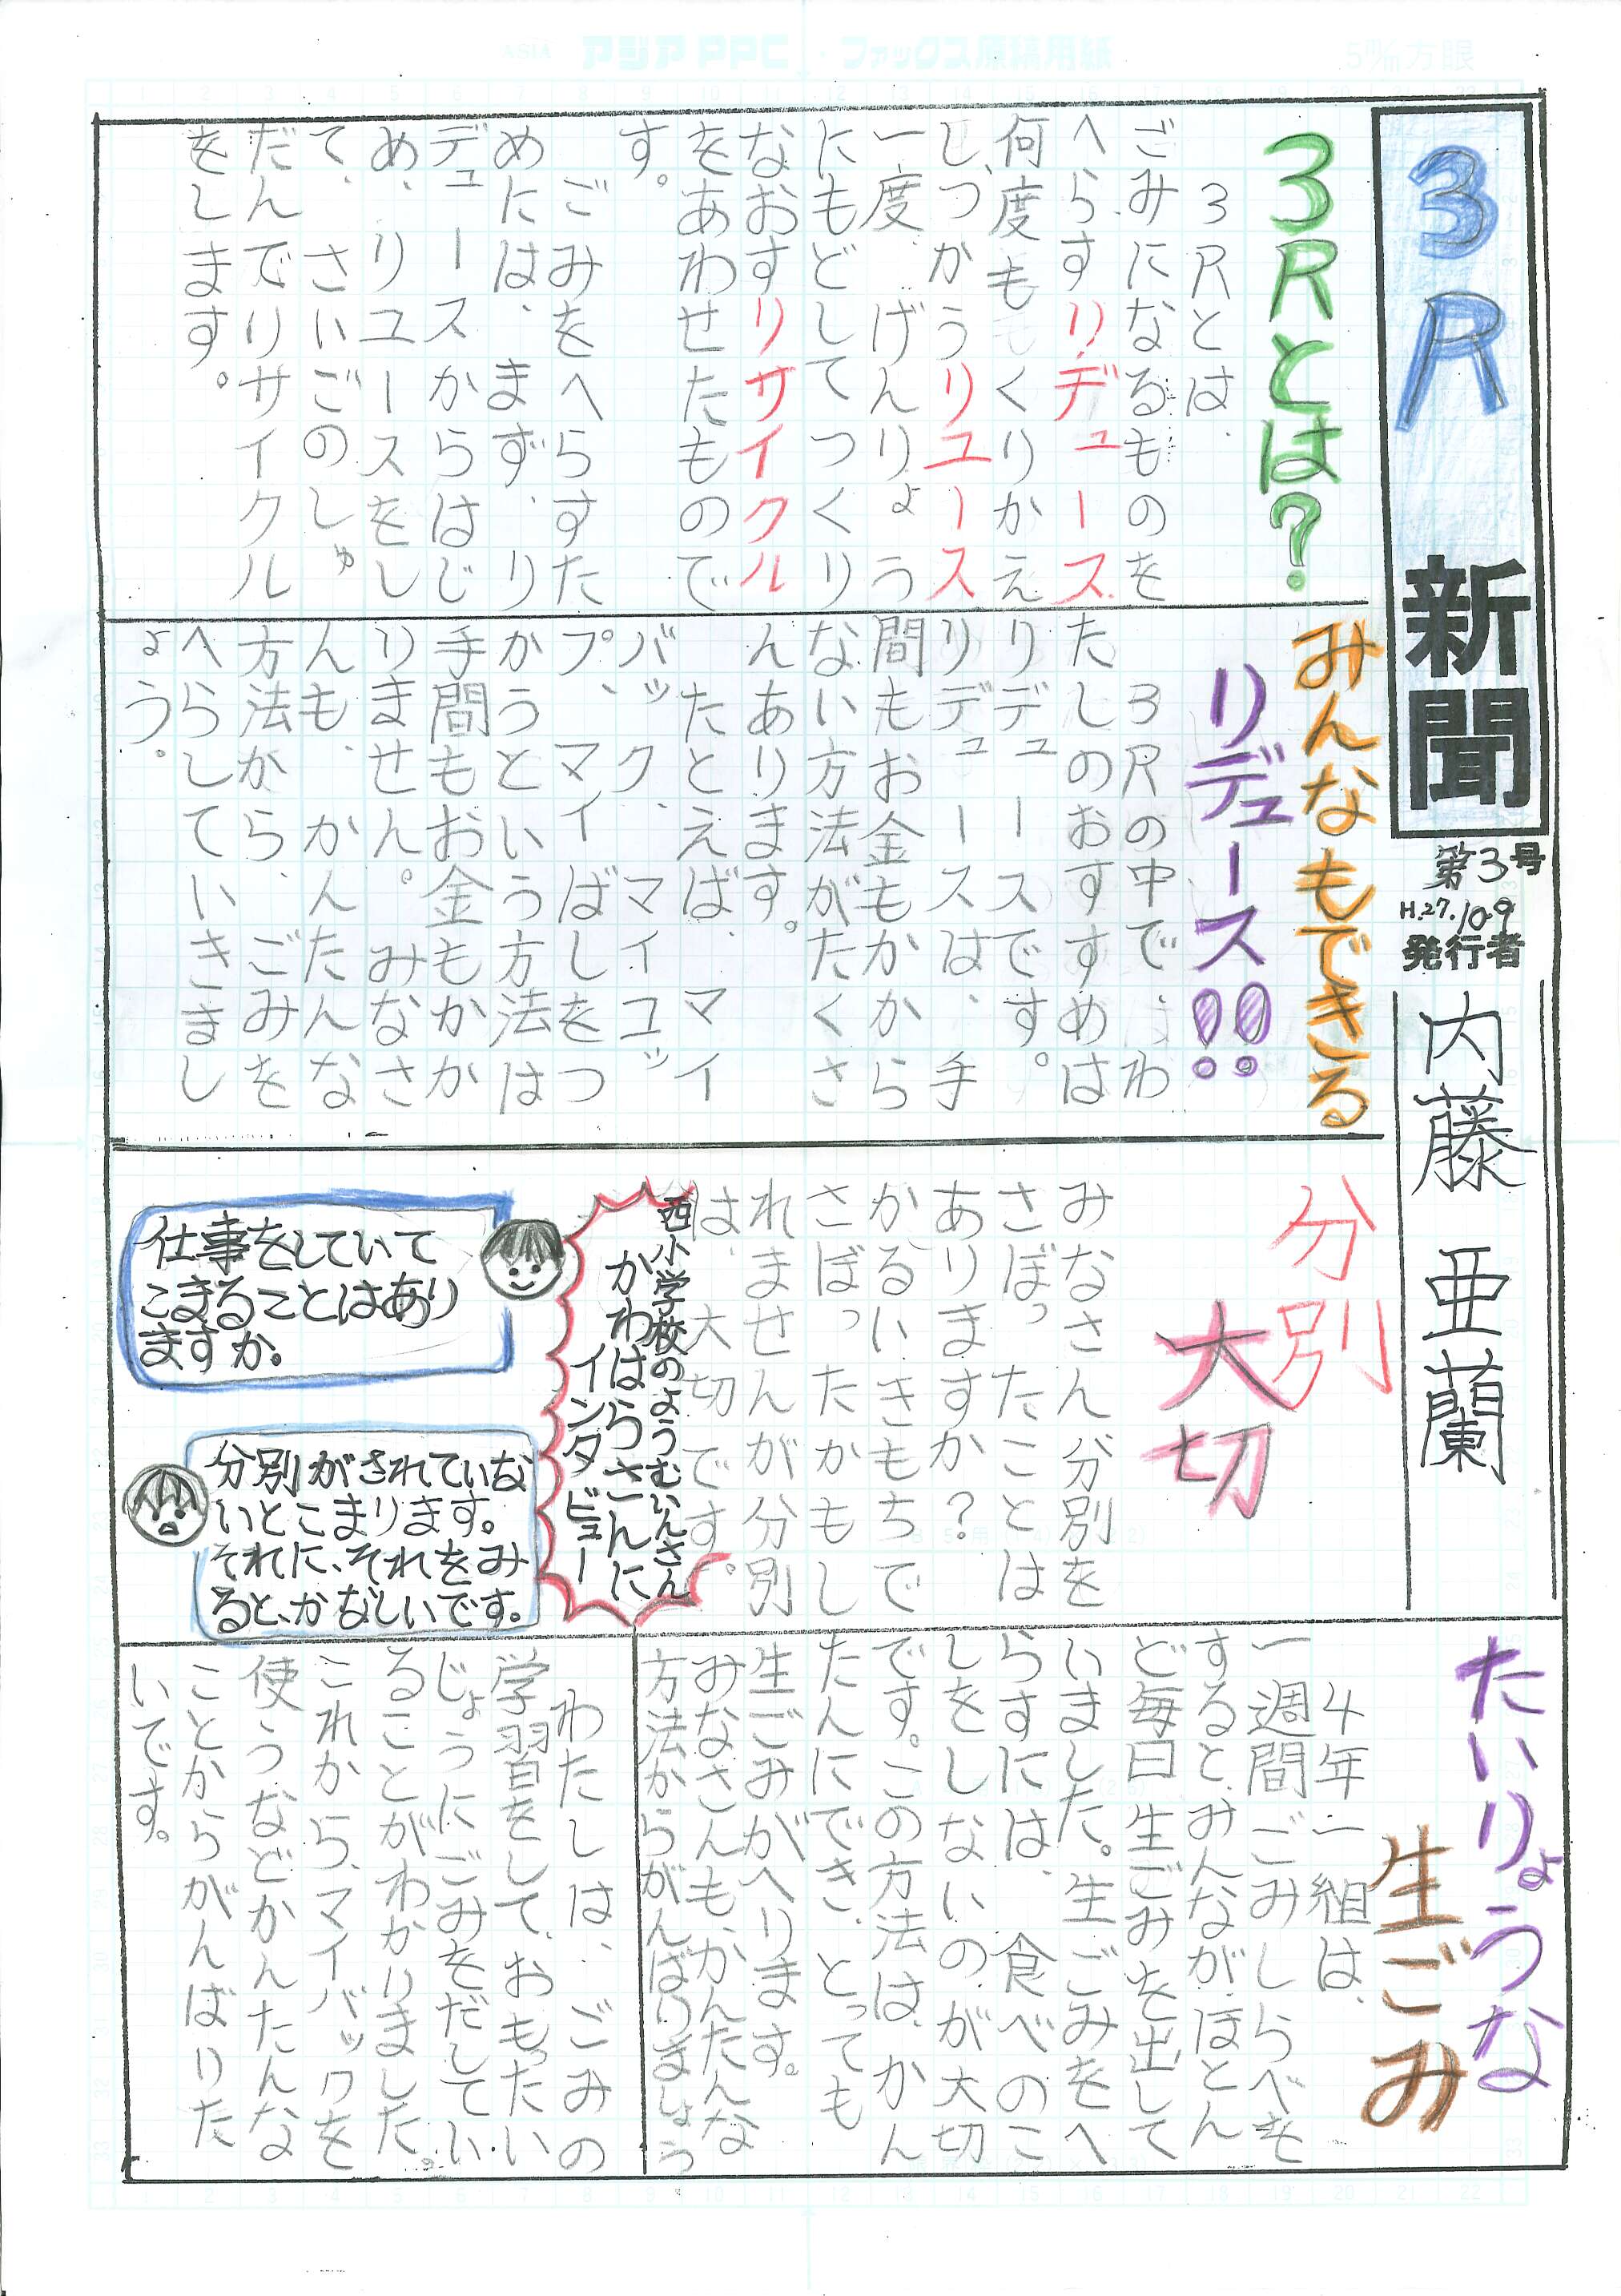 アジア PPC・ファックス原稿用紙
5㎜方眼
3R新聞
第3号
H.27.10.9
発行者
内藤 亜蘭
3Rとは?
3Rとは、
ごみになるものを
へらすリデュース
何度もくりかえ
しつかうリユース
一度、げんりょう
にもどしてつくり
なおすリサイクル
をあわせたもので
す。
ごみをへらすた
めには、まず、リ
デュースからはじ
め、リユースをし
て、さいごのしゅ
だんでリサイクル
をします。
みんなもできる
リデュース!!
3Rの中で、わ
たしのおすすめは
リデュースです。
リデュースは、手
間もお金もかから
ない方法がたくさ
んあります。
たとえば、マイ
バック、マイコッ
プ、マイばしをつ
かうという方法は
手間もお金もかか
りません。みなさ
んも、かんたんな
方法から、ごみを
へらしていきまし
ょう。
分別
大切
みなさん分別を
さぼったことは
ありますか?
かるいきもちで
さぼったかもし
れませんが分別
は、大切です。
西小学校のようむいんさん
かわはらさんに
インタビュー
仕事をしていて
こまることはあり
ますか。
分別がされていな
いとこまります。
それに、それをみ
ると、かなしいです。
たいりょうな
生ごみ
4年二組は、
一週間ごみしらべを
すると、みんながほとん
ど毎日生ごみを出して
いました。生ごみをへ
らすには、食べのこ
しをしないのが大切
です。この方法は、かん
たんにでき、とっても
生ごみがへります。
みなさんも、かんたんな
方法からがんばりましょう
わたしは、ごみの
学習をして、おもったい
じょうにごみをだしてい
ることがわかりました。
これから、マイバックを
使うなどかんたんな
ことからがんばりた
いです。